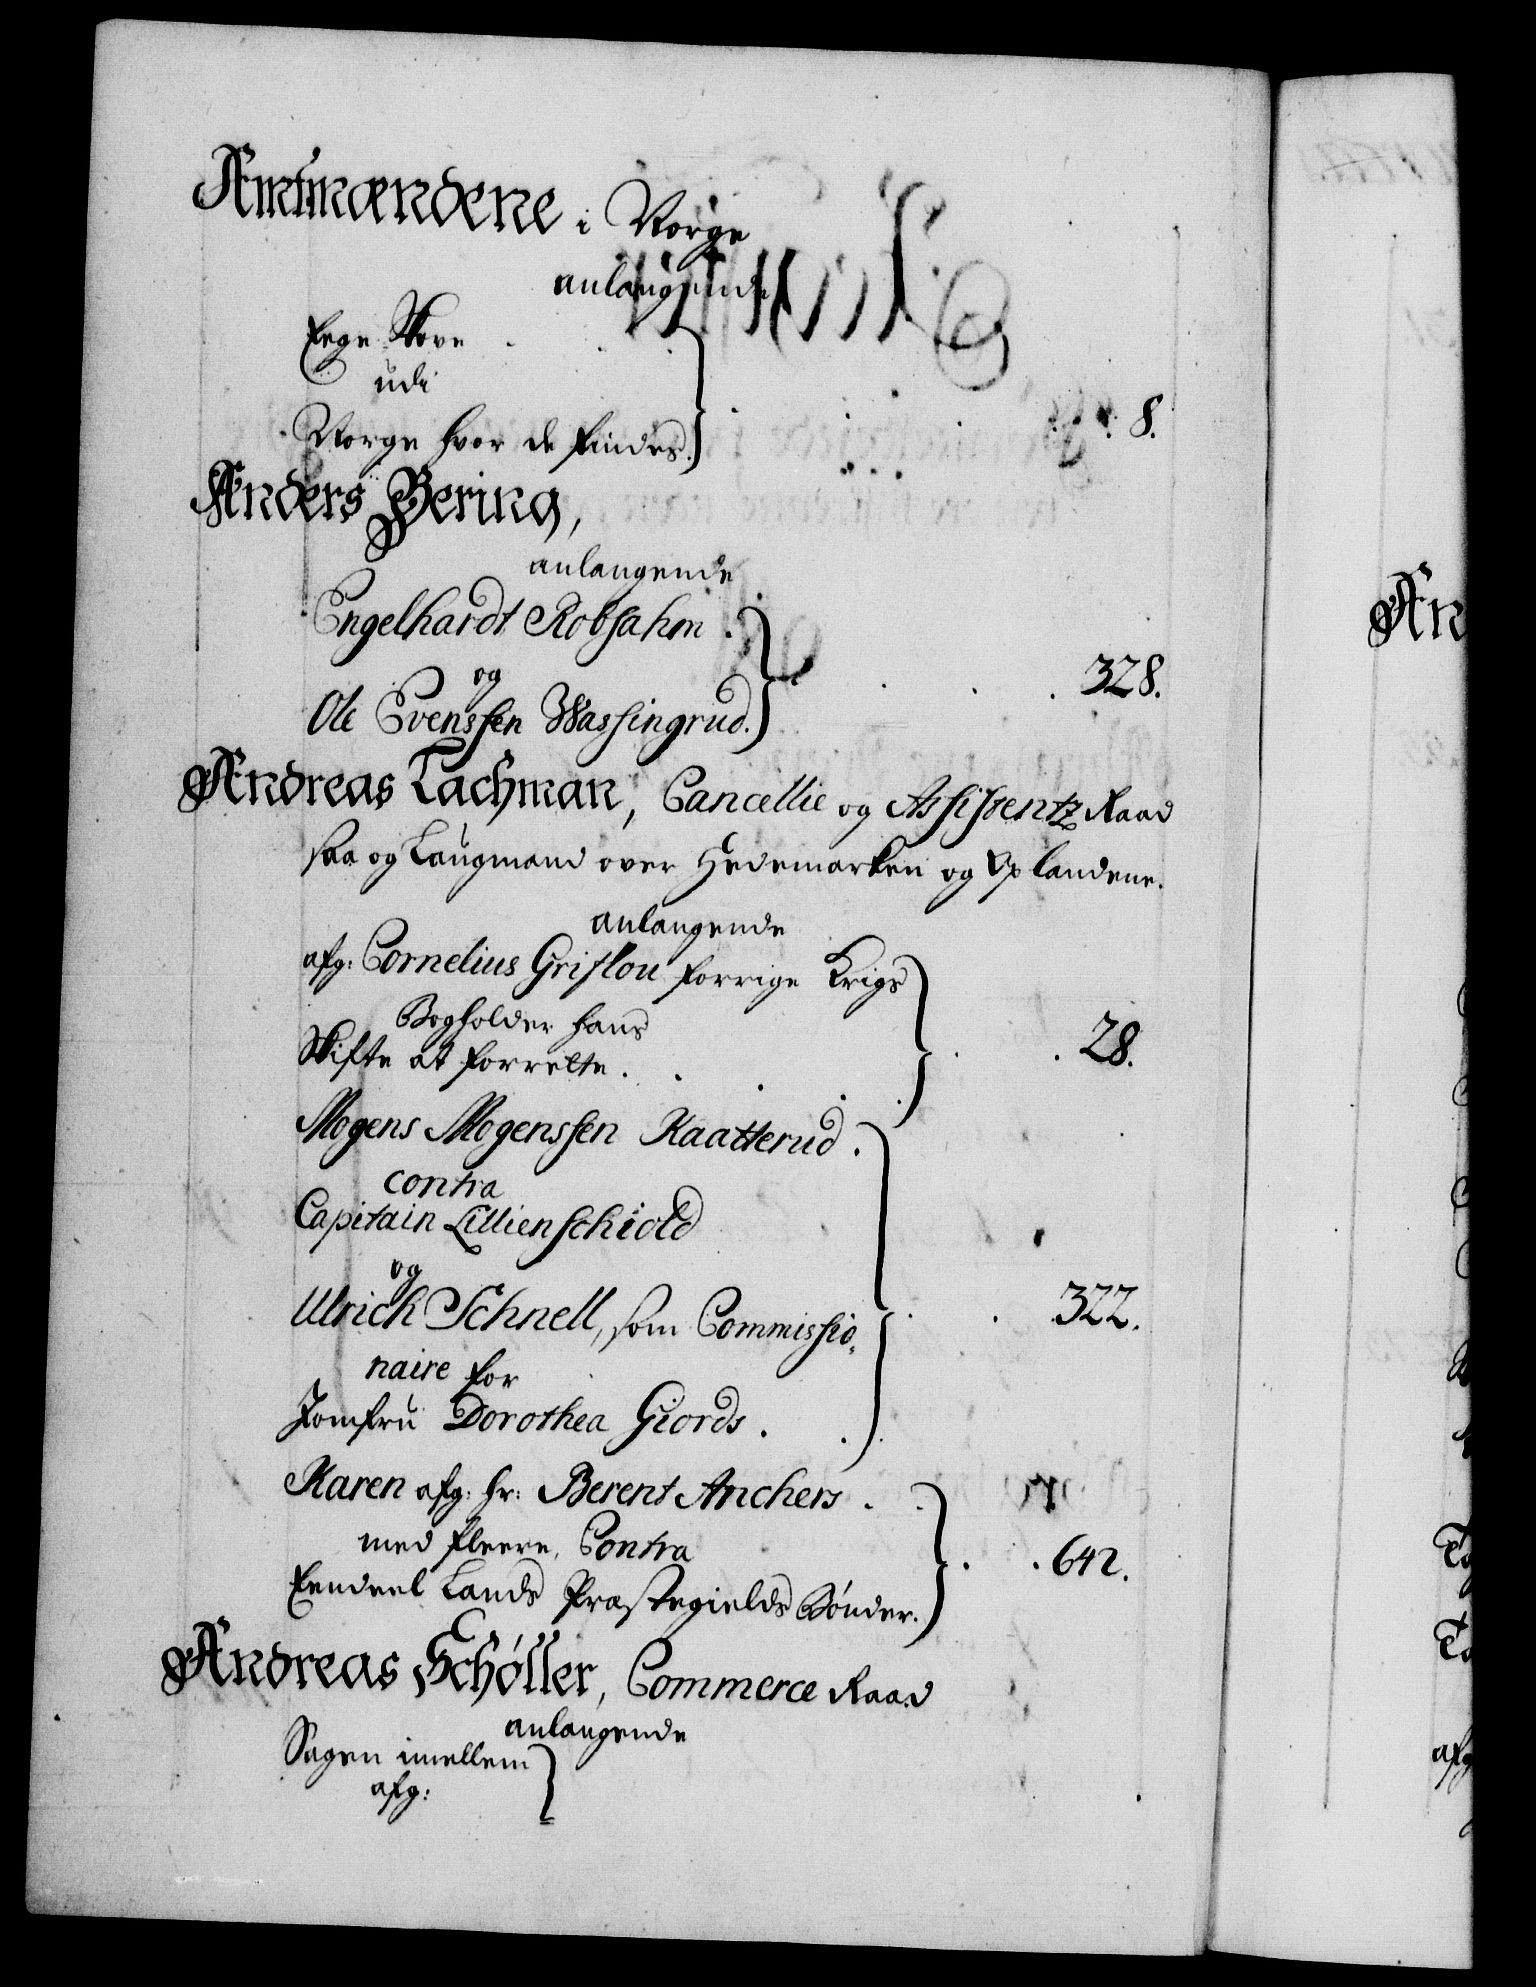 Amtmændene i Norge
anlangende
Eege Skove
udi
Norge hvor de findes.
8.
Anders Bering,
anlangende
Engelhardt Robsahm.
og
Ole Evenssen Wassingrud.
328.
Andreas Lachman, Cancellie og Assistentz Raad
saa og Laugmand over Hedemarken og Oplandene.
anlangende
afg: Cornelius Grislou forrige Krigs
Bogholder hans
Skifte at forrette.
28.
Mogens Mogenssen Kaatterud.
contra
Capitain Lillienschiold
og
Ulrich Schnell, som Commissio„
naire for
Jomfru Dorothea Giords.
322.
Karen afg: hr: Berent Anchers.
med fleere, Contra
Eendeel Lands Præstegields Bønder.
642.
Andreas Schøller, Commerce Raad
anlangende
Sagen imellem
afg:
An
afg